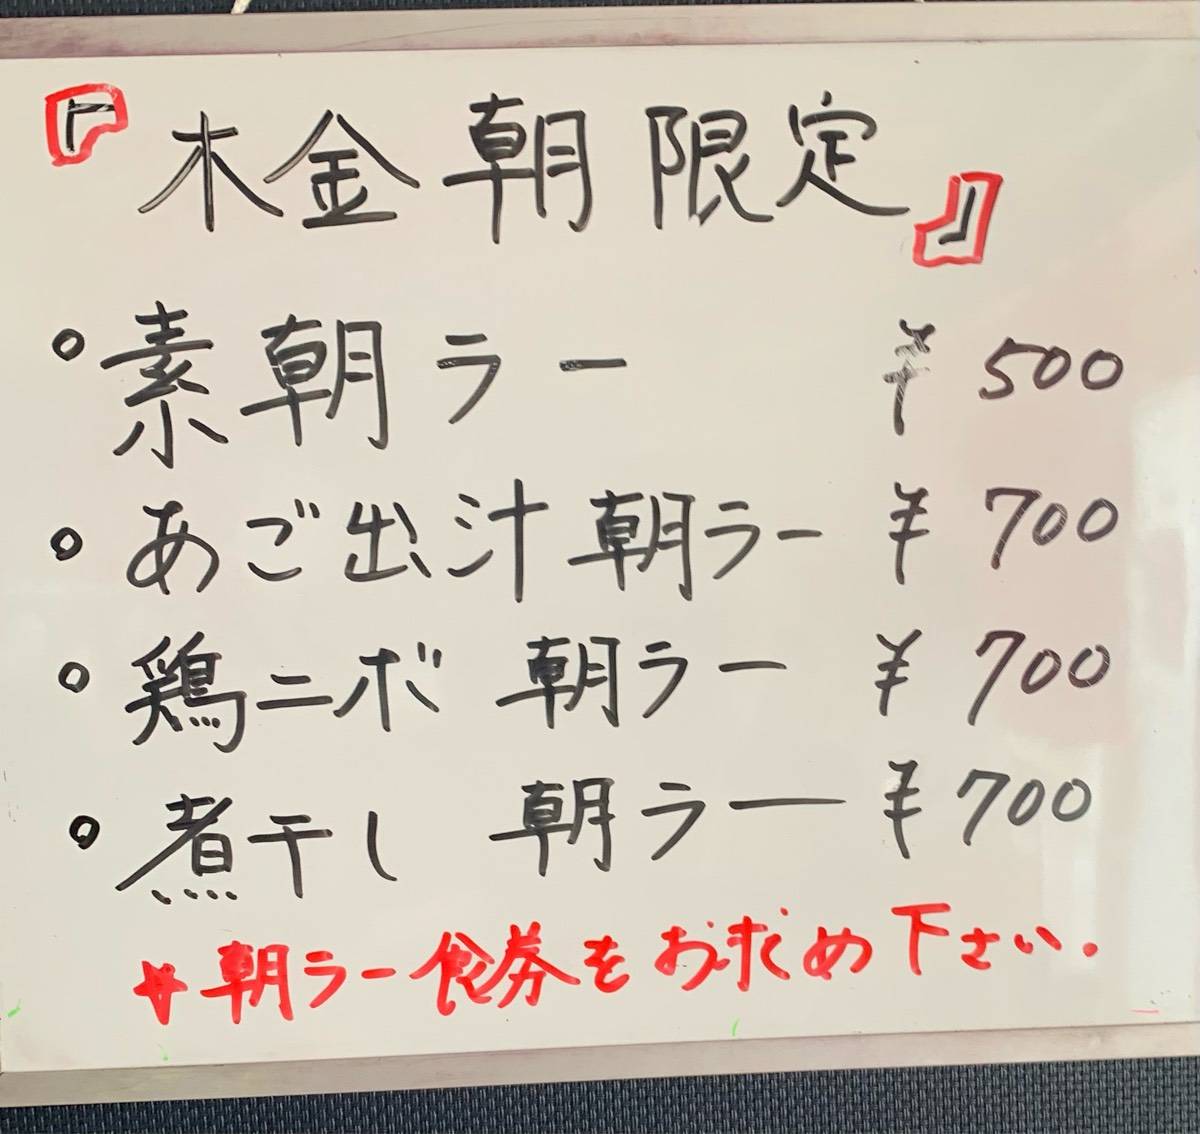 『木金朝限定』
○素朝ラー ¥500
○あご出汁朝ラー ¥700
○鶏ニボ 朝ラー ¥700
○煮干し 朝ラー ¥700
☆朝ラー食券をお求め下さい.